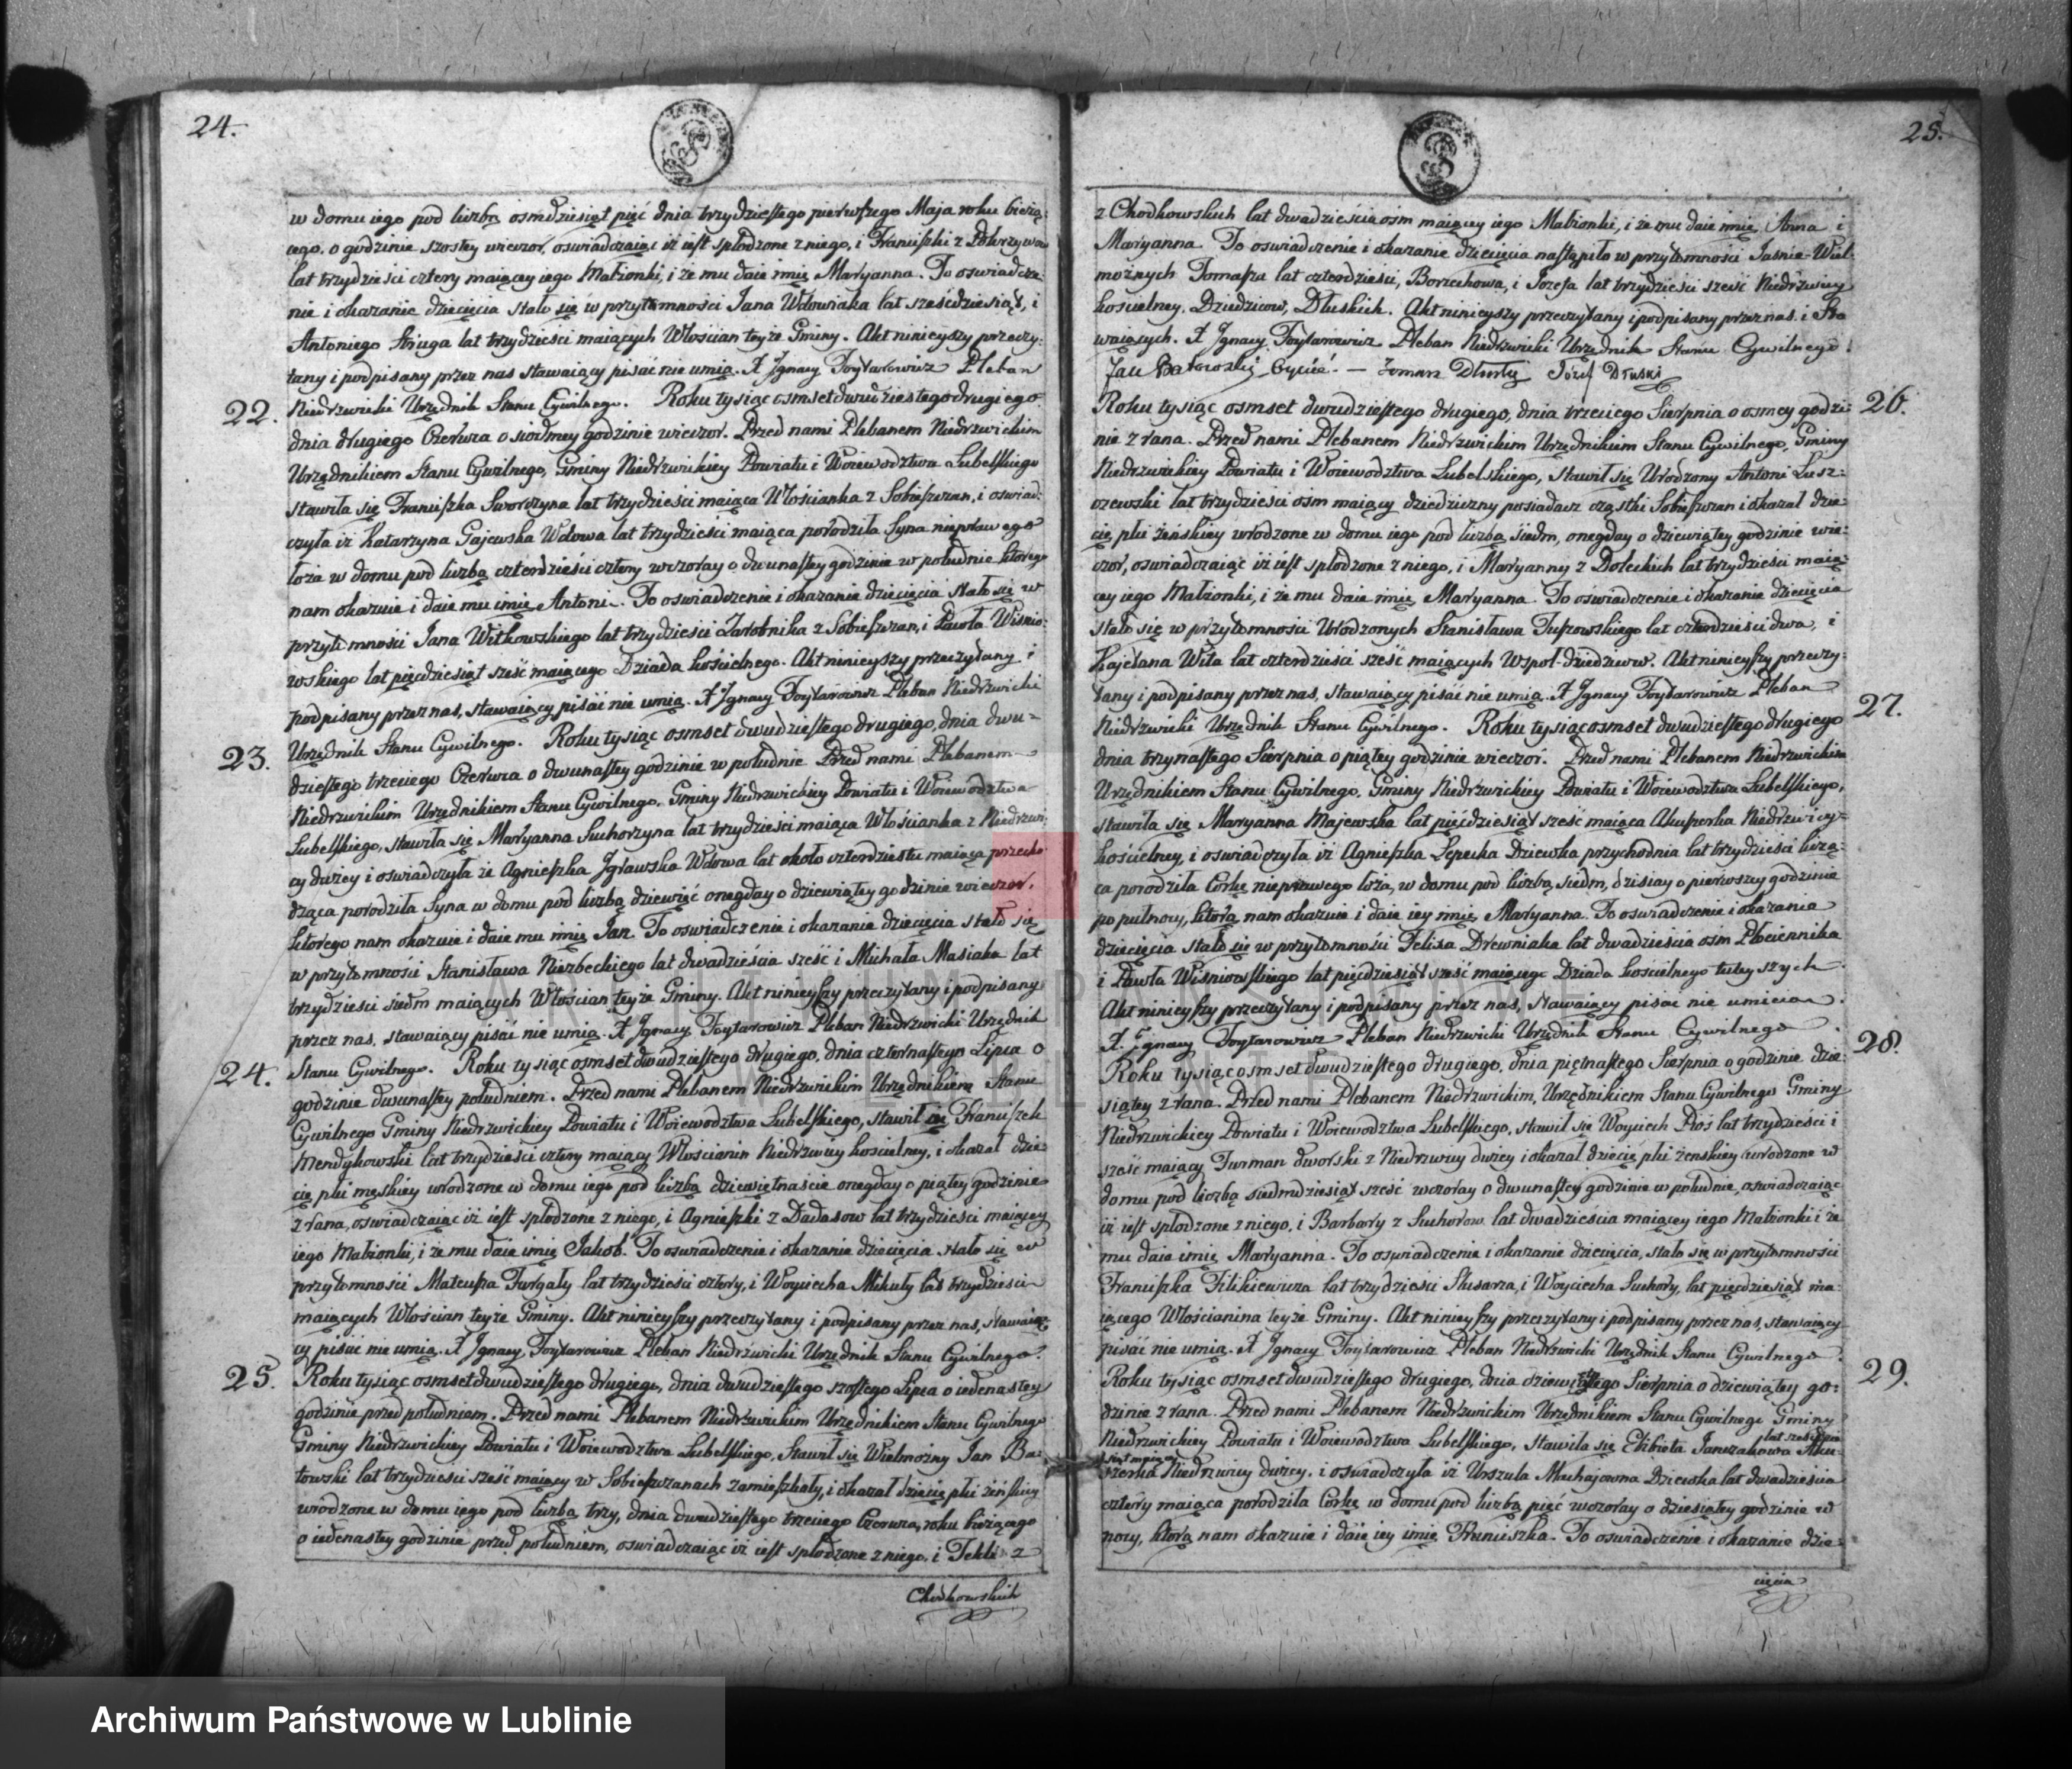 24.
w domu iego pod liczbą ośmdziesiąt pięć dnia trzydziestego pierwszego Maja roku bieżą:
cego, o godzinie szostey wieczor, oswiadczaiąc iż iest spłodzone z niego, i Franciszki z Pokrzywow
lat trzydzieści cztery maiący iego Małżonki, i że mu daie imię Maryanna. To oswiadcze
nie i okazanie dziecięcia stało się w przytomności Jana Wdowiaka lat sześćdziesiąt, i
Antoniego Struga lat trzydzieści maiących Włościan teyże Gminy. Akt ninieyszy przeczy:
tany i podpisany przez nas stawaiący pisać nie umią. X Ignacy Foytarowicz Pleban
Niedrzwicki Urzędnik Stanu Cywilnego.
22. Roku tysiąc osmset dwudziestego drugiego
dnia drugiego Czerwca o siodmey godzinie wieczor. Przed nami Plebanem Niedrzwickim
Urzędnikiem Stanu Cywilnego, Gminy Niedrzwickiey Powiatu i Woiewodztwa Lubelskiego
stawiła się Franciszka Sworczyna lat trzydzieści maiąca Włościanka z Sobieszczan, i oswiad:
czyła iż Katarzyna Gajewska Wdowa lat trzydzieści maiąca porodziła Syna nieprawego
łoża w domu pod liczbą czterdzieści cztery wczoray o dwunastey godzinie w południe którego
nam okazuie i daie mu imię Antoni. To oswiadczenie i okazanie dziecięcia stało się w
przytomności Jana Witkowskiego lat trzydzieści Zarobnika z Sobieszczan, i Pawła Wiśnio:
wskiego lat pięćdziesiąt sześć maiącego Dziada kościelnego. Akt ninieyszy przeczytany i
podpisany przez nas, stawaiący pisać nie umią. X Ignacy Foytarowicz Pleban Niedrzwicki
Urzędnik Stanu Cywilnego.
23. Roku tysiąc osmset dwudziestego drugiego, dnia dwu=
dziestego trzeciego Czerwca o dwunastey godzinie w południe Przed nami Plebanem
Niedrzwickim Urzędnikiem Stanu Cywilnego, Gminy Niedrzwickiey Powiatu i Woiewodztwa
Lubelskiego, stawiła się Maryanna Suchorzyna lat trzydzieści maiąca Włościanka z Niedrzwi:
cy dużey i oswiadczyła że Agnieszka Jgławska Wdowa lat około czterdziestu maiąca przecho
dząca porodziła Syna w domu pod liczbą dziewięć onegday o dziewiątey godzinie wieczor,
którego nam okazuie i daie mu imię Jan. To oswiadczenie i okazanie dziecięcia stało się
w przytomności Stanisława Niezbeckiego lat dwadzieścia sześć i Michała Masiaka lat
trzydzieści siedm maiących Włościan teyże Gminy. Akt ninieyszy przeczytany i podpisany
przez nas, stawaiący pisać nie umią. X Ignacy Foytarowicz Pleban Niedrzwicki Urzędnik
Stanu Cywilnego.
24. Roku tysiąc osmset dwudziestego drugiego, dnia czternastego Lipca o
godzinie dwunastey południem. Przed nami Plebanem Niedrzwickim Urzędnikiem Stanu
Cywilnego Gminy Niedrzwickiey Powiatu i Woiewodztwa Lubelskiego, stawił się Franciszek
Mendykowski lat trzydzieści cztery maiący Włościanin Niedrzwicy kościelney, i okazał dzie
cię płci męskiey urodzone w domu iego pod liczbą dziewiętnaście onegday o piątey godzinie
z rana, oswiadczaiąc iż iest spłodzone z niego, i Agnieszki z Dadasow lat trzydzieści maiącey
iego Małżonki, i że mu daie imię Jakób. To oswiadczenie i okazanie dziecięcia stało się w
przytomności Mateusza Furgały lat trzydzieści cztery, i Woyciecha Mikuły lat trzydzieści
maiących Włościan teyże Gminy. Akt ninieyszy przeczytany i podpisany przez nas, stawaią:
cy pisać nie umią. X Ignacy Foytarowicz Pleban Niedrzwicki Urzędnik Stanu Cywilnego.
25. Roku tysiąc osmset dwudziestego drugiego, dnia dwudziestego szostego Lipca o iedenastey
godzinie przed południem. Przed nami Plebanem Niedrzwickim Urzędnikiem Stanu Cywilnego
Gminy Niedrzwickiey Powiatu i Woiewodztwa Lubelskiego, Stawił się Wielmożny Jan Ba:
towski lat trzydzieści sześć maiący w Sobieszczanach zamieszkały, i okazał dziecię płci żeńskiey
urodzone w domu iego pod liczbą trzy, dnia dwudziestego trzeciego Czerwca, roku bieżącego
o iedenastey godzinie przed południem, oswiadczaiąc iż iest spłodzone z niego, i Tekli z
Chodkowskich
25.
z Chodkowskich lat dwadzieścia osm maiącey iego Małżonki, i że mu daie imię Anna i
Maryanna. To oswiadczenie i okazanie dziecięcia nastąpiło w przytomności Jaśnie-Wiel:
możnych Tomasza lat czterdzieści, Borzechowa, i Jozefa lat trzydzieści sześć Niedrzwicy
kościelney, Dziedzicow, Dłuskich. Akt ninieyszy przeczytany i podpisany przez nas, i Sta
waiących. X Ignacy Foytarowicz Pleban Niedrzwicki Urzędnik Stanu Cywilnego.
Jan Batowski Oyciéc. — Tomasz Dłuski Józef Dłuski
26. Roku tysiąc osmset dwudziestego drugiego, dnia trzeciego Sierpnia o osmey godzi:
nie z rana. Przed nami Plebanem Niedrzwickim Urzędnikiem Stanu Cywilnego, Gminy
Niedrzwickiey Powiatu i Woiewodztwa Lubelskiego, stawił się Urodzony Antoni Lusz:
czewski lat trzydzieści osm maiący dziedziczny posiadacz cząstki Sobieszczan i okazał dzie:
cię płci żeńskiey urodzone w domu iego pod liczbą siedm, onegday o dziewiątey godzinie wie:
czor, oswiadczaiąc iż iest spłodzone z niego, i Maryanny z Doleckich lat trzydzieści maią:
cey iego Małżonki, i że mu daie imię Maryanna. To oswiadczenie i okazanie dziecięcia
stało się w przytomności Urodzonych Stanisława Tuszowskiego lat czterdzieści dwa, i
Kajetana Wita lat czterdzieści sześć maiących Wspoł-dziedzicow. Akt ninieyszy przeczy:
tany i podpisany przez nas, stawaiący pisać nie umią. X Ignacy Foytarowicz Pleban
Niedrzwicki Urzędnik Stanu Cywilnego.
27. Roku tysiąc osmset dwudziestego drugiego
dnia trzynastego Sierpnia o piątey godzinie wieczor. Przed nami Plebanem Niedrzwickim
Urzędnikiem Stanu Cywilnego, Gminy Niedrzwickiey Powiatu i Woiewodztwa Lubelskiego,
stawiła się Maryanna Majewska lat pięćdziesiąt sześć maiąca Akuszerka Niedrzwicy=
kościelney, i oswiadczyła iż Agnieszka Lepecka Dziewka przychodnia lat trzydzieści liczą:
ca porodziła Corkę nieprawego łoża, w domu pod liczbą siedm, dzisiay o pierwszey godzinie
po pułnocy, którą nam okazuie i daie iey imię Maryanna. To oswiadczenie i okazania
dziecięcia stało się w przytomności Felixa Drewniaka lat dwadzieścia osm Płóciennika
i Pawła Wiśniowskiego lat pięćdziesiąt sześć maiącego Dziada kościelnego tuteyszych.
Akt ninieyszy przeczytany i podpisany przez nas, stawaiący pisać nie umieią.
X. Ignacy Foytarowicz Pleban Niedrzwicki Urzędnik Stanu Cywilnego.
28. Roku tysiąc osmset dwudziestego drugiego, dnia piętnastego Sierpnia o godzinie dzie:
siątey z rana. Przed nami Plebanem Niedrzwickim, Urzędnikiem Stanu Cywilnego Gminy
Niedrzwickiey Powiatu i Woiewodztwa Lubelskiego, stawił się Woyciech Proś lat trzydzieści i
sześć maiący Furman dworski z Niedrzwicy dużey i okazał dziecię płci żeńskiey urodzone w
domu pod liczbą siedmdziesiąt sześć wczoray o dwunastey godzinie w południe, oswiadczaiąc
iż iest spłodzone z niego, i Barbary z Suchorow lat dwadzieścia maiącey iego Małżonki i że
mu daie imię Maryanna. To oswiadczenie i okazanie dziecięcia, stało się w przytomności
Franciszka Filikiewicza lat trzydzieści Slusarza, i Woyciecha Suchory, lat pięćdziesiąt ma:
iącego Włościanina teyże Gminy. Akt ninieyszy przeczytany i podpisany przez nas, stawaiący
pisać nie umią. X Ignacy Foytarowicz Pleban Niedrzwicki Urzędnik Stanu Cywilnego.
29. Roku tysiąc osmset dwudziestego drugiego, dnia dziewiątego Sierpnia o dziewiątey go:
dzinie z rana. Przed nami Plebanem Niedrzwickim Urzędnikiem Stanu Cywilnego Gminy
Niedrzwickiey Powiatu i Woiewodztwa Lubelskiego, Stawiła się Elżbieta Janczakowa Aku:
szerka Niedrzwicy dużey, i oswiadczyła iż Urszula Michajowna Dziewka lat dwadzieścia
cztery maiąca porodziła Corkę w domu pod liczbą pięć wczoray o dziesiątey godzinie w
nocy, którą nam okazuie i daie iey imię Franciszka. To oswiadczenie i okazanie dzie:
cięcia
ARCHIWUM PAŃSTWOWE
W LUBLINIE
Archiwum Państwowe w Lublinie